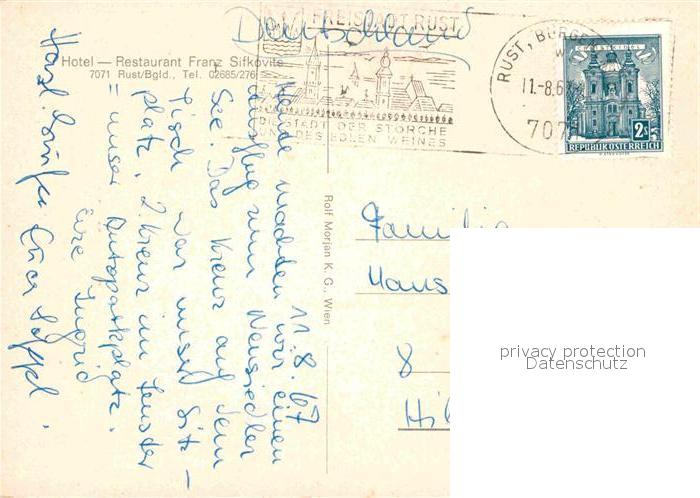 Deutschland
FREISTADT RUST
DIE STADT DER STÖRCHE
UND DES EDLEN WEINES
RUST, BURGE
11.-8.6
707
CHRISTKINDL
2s
REPUBLIK ÖSTERREICH
Hotel — Restaurant Franz Sifkovits
7071 Rust/Bgld., Tel. 02685/276
11.8.67
Heute machten wir einen
Ausflug zum Neusiedler
See. Das Kreuz auf dem
Tisch war unser Sitz-
platz. 2. Kreuz im Fenster
= unser Autoparkplatz.
Eure Ingrid
Herzl. Grüße
Rolf Morjan K. G., Wien
Familie
Hans
8
Hil
privacy protection
Datenschutz